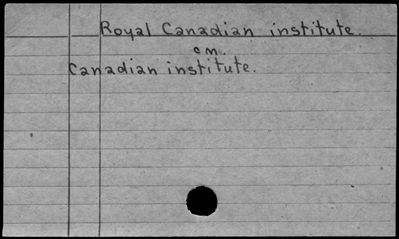 Royal Canadian institute.
cm.
Canadian institute.